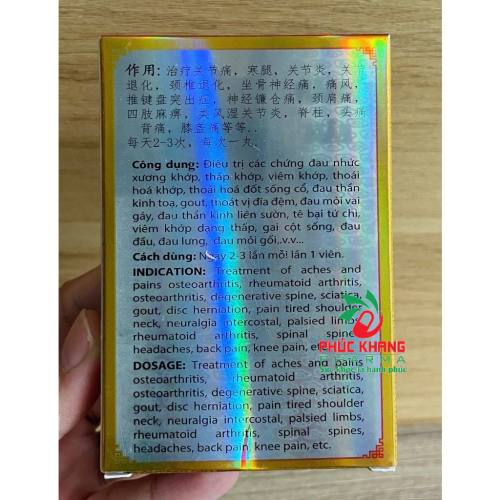 作用：治疗关节痛，寒腿，关节炎，关节
退化，颈椎退化，坐骨神经痛，痛风，
推键盘突出症，神经镰仓痛，颈肩痛，
四肢麻痹，类风湿关节炎，脊柱，头痛
背痛，膝盖痛等等..
每天2-3次，每次一丸。
Công dụng: Điều trị các chứng đau nhức
xương khớp, thấp khớp, viêm khớp, thoái
hoá khớp, thoái hoá đốt sống cổ, đau thần
kinh toạ, gout, thoát vị đĩa đệm, đau mỏi vai
gáy, đau thần kinh liên sườn, tê bại tứ chi,
viêm khớp dạng thấp, gai cột sống, đau
đầu, đau lưng, đau mỏi gối,.v.v...
Cách dùng: Ngày 2-3 lần mỗi lần 1 viên.
INDICATION: Treatment of aches and
pains osteoarthritis, rheumatoid arthritis,
osteoarthritis, degenerative spine, sciatica,
gout, disc herniation, pain tired shoulder
neck, neuralgia intercostal, palsied limbs,
rheumatoid arthritis, spinal spines,
headaches, back pain, knee pain, etc.
PHÚC KHANG
PHARMA
Sức khỏe là hạnh phúc
DOSAGE: Treatment of aches and pains
osteoarthritis, rheumatoid arthritis,
osteoarthritis, degenerative spine, sciatica,
gout, disc herniation, pain tired shoulder
neck, neuralgia intercostal, palsied limbs,
rheumatoid arthritis, spinal spines,
headaches, back pain, knee pain, etc.